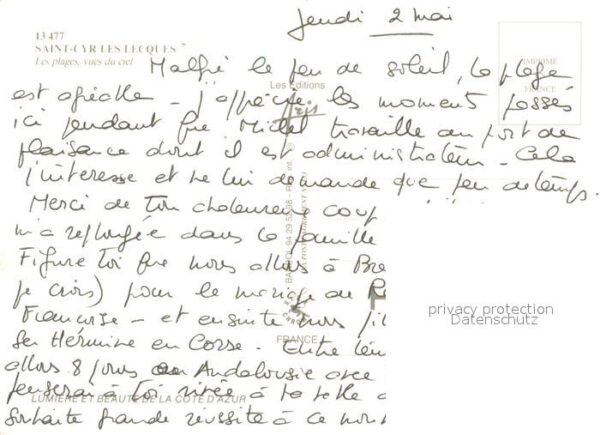 Jeudi 2 mai
13 477
SAINT-CYR LES LECQUES
Les plages, vues du ciel
IMPRIMÉ
FRANCE
Malgré le peu de soleil, la plage
est agréable - j'apprécie les moments passés
ici pendant que Michel travaille au port de
plaisance dont il est administrateur - Cela
l'intéresse et ne lui demande que peu de temps.
Merci de ton chaleureux coup
m'a replongée dans la famille
Figure toi que nous allons à Bre
je crois) pour le mariage de
Françoise - et ensuite nous
Hermine en Corse. Entre
allons 8 jours en Andalousie avec
penserai à toi rivée à ta
souhaite grande réussite à ce
Les Éditions
FRANCE
LUMIÈRE ET BEAUTÉ DE LA CÔTE D'AZUR
privacy protection
Datenschutz